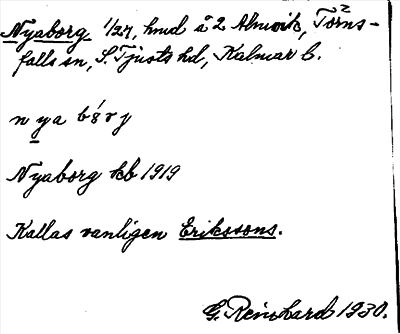 Nyaborg 1/27, hmd å 2 Almvik, Törns-
falls sn, S. Tjusts hd, Kalmar l.
n ya bårj
Nyaborg kb 1919
Kallas vanligen Erikssons.
G. Reinhard 1930.